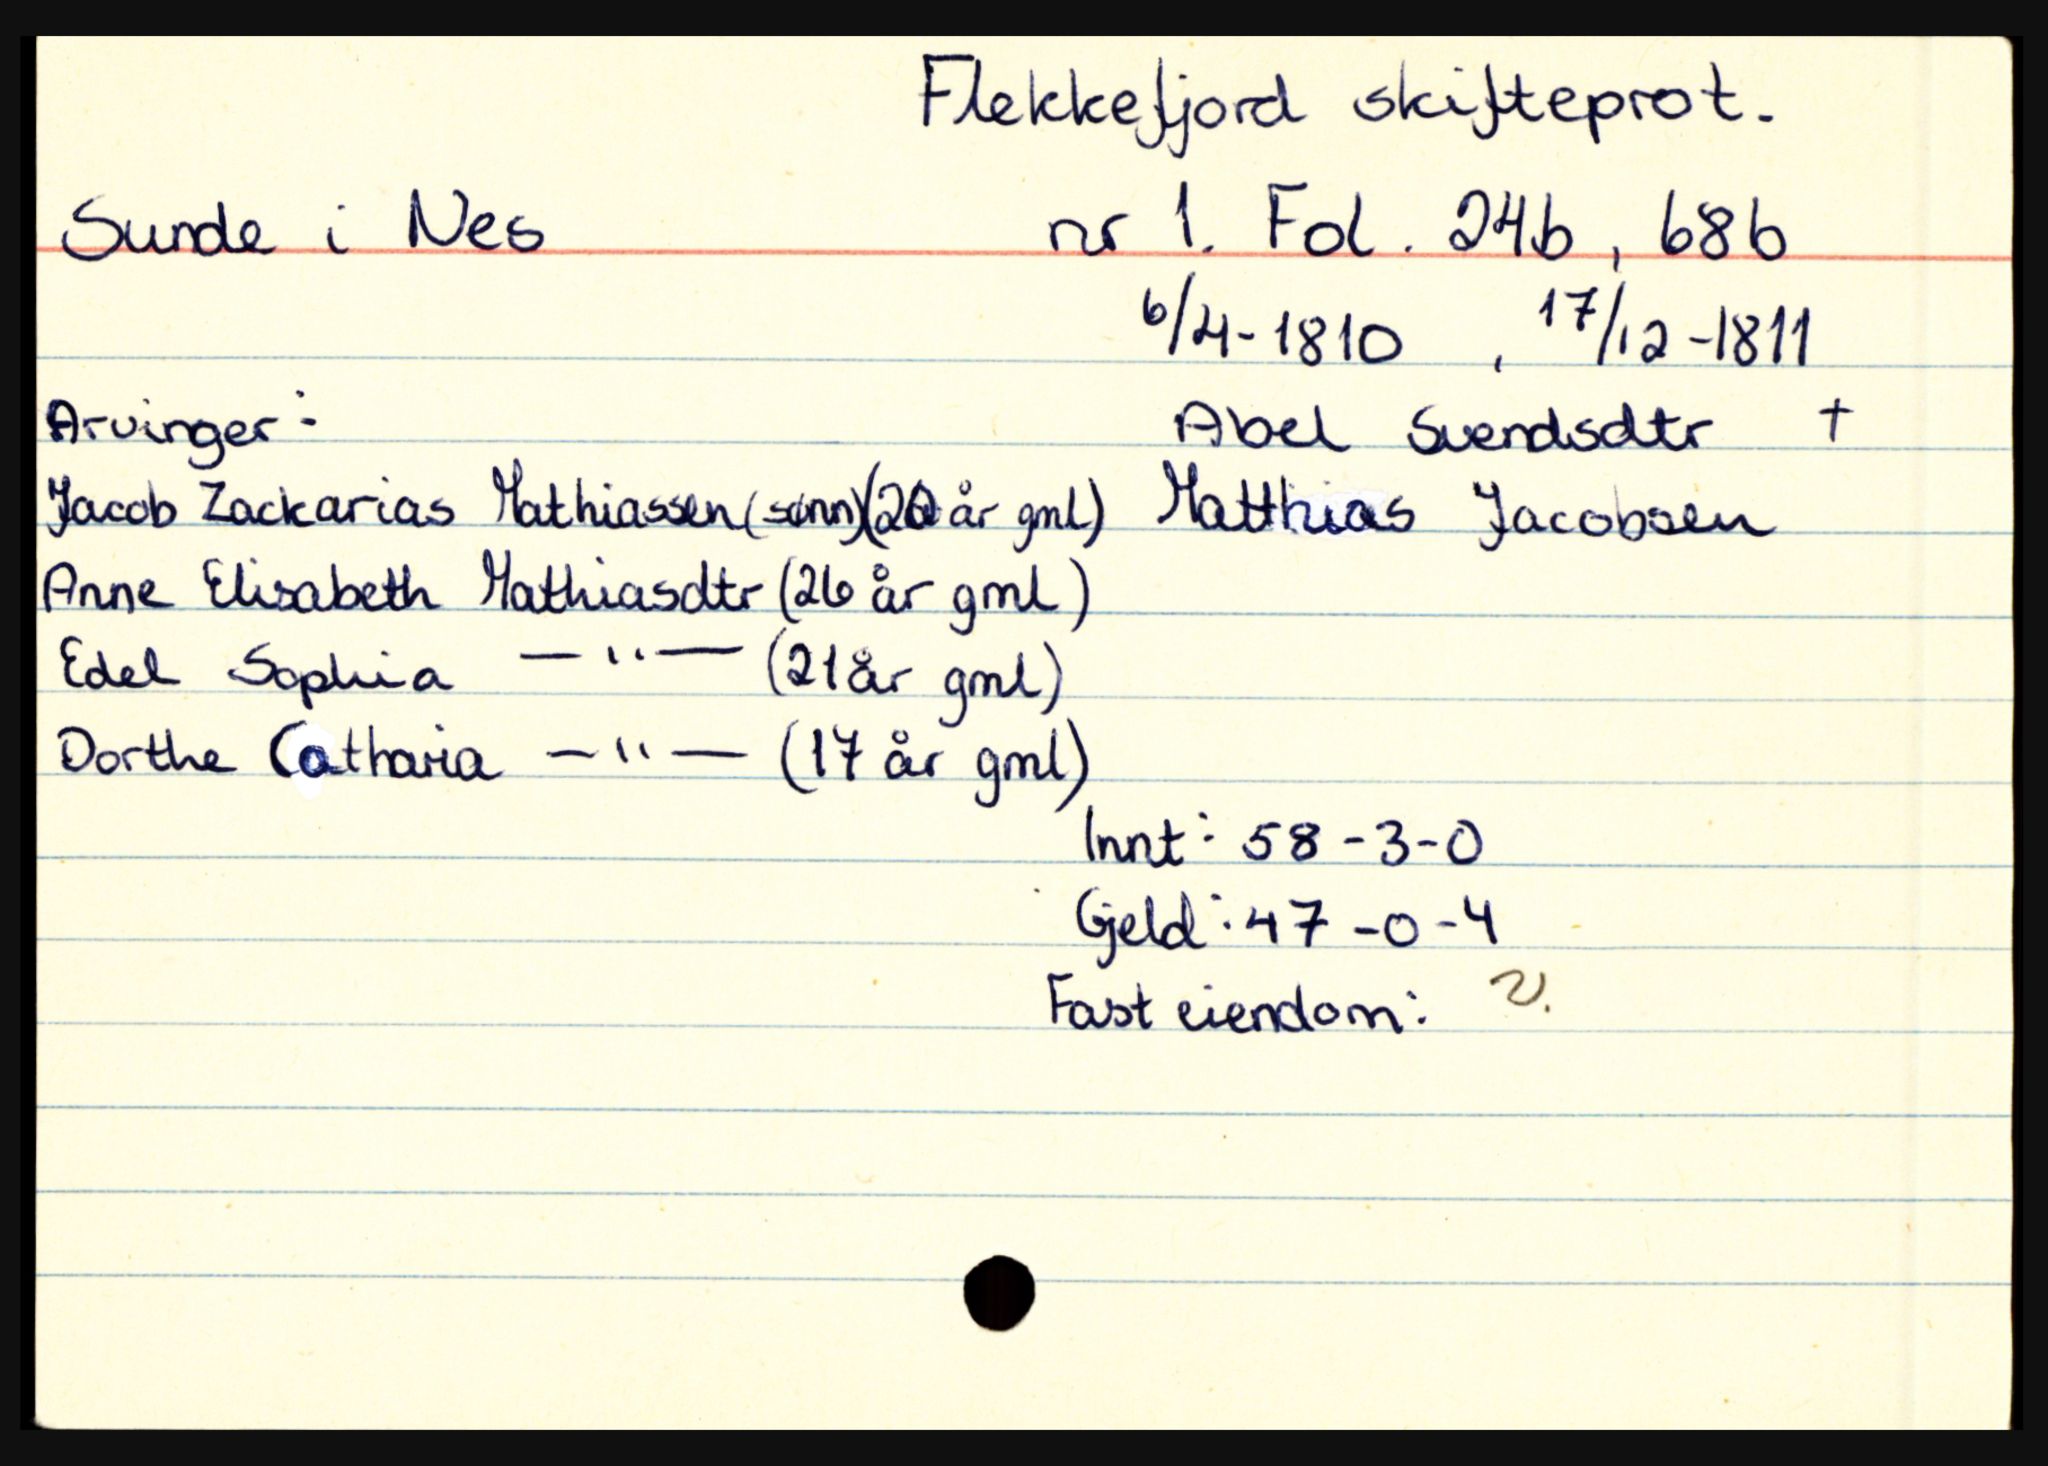 Flekkefjord skifteprot.
Sunde i Nes nr 1. Fol. 24b, 68b
6/4-1810, 17/12-1811
Arvinger: Abel Svendsdtr †
Jacob Zackarias Mathiassen (sønn) (20 år gml) Matthias Jacobsen
Anne Elisabeth Mathiasdtr (26 år gml)
Edel Sophia —"— (21 år gml)
Dorthe Catharia —"— (17 år gml)
Innt: 58-3-0
Gjeld: 47-0-4
Fast eiendom: